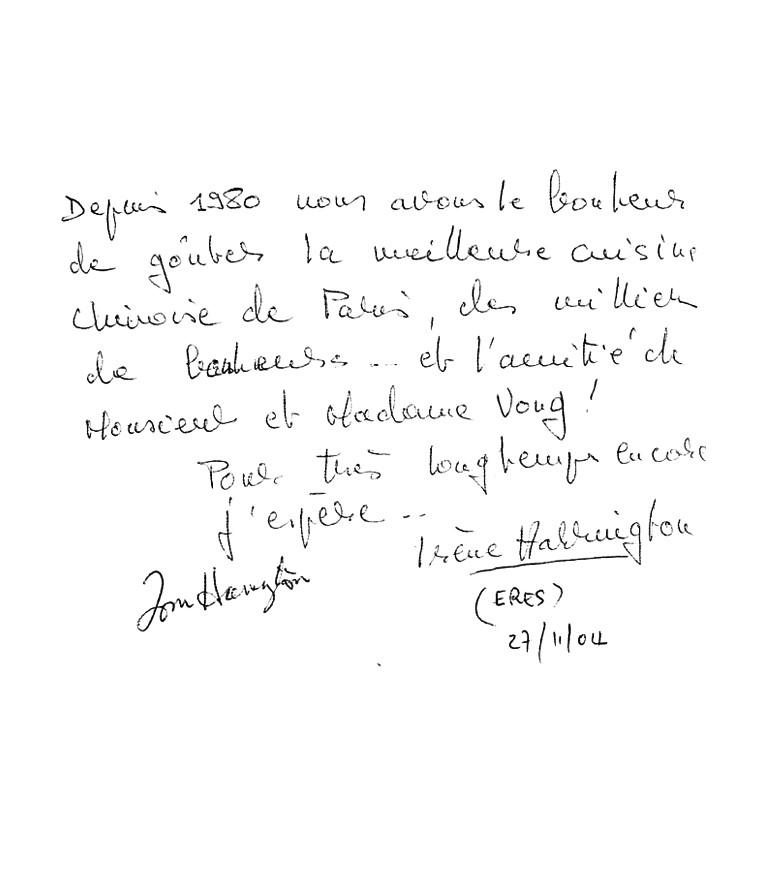 Depuis 1980 nous avons le bonheur
de goûter la meilleure cuisine
chinoise de Paris, des milliers
de bonheurs ... et l'amitié de
Monsieur et Madame Vong !
Pour très longtemps encore
j'espère ...
Irène Harrington
Tom Harrington
(ERES)
27/11/04